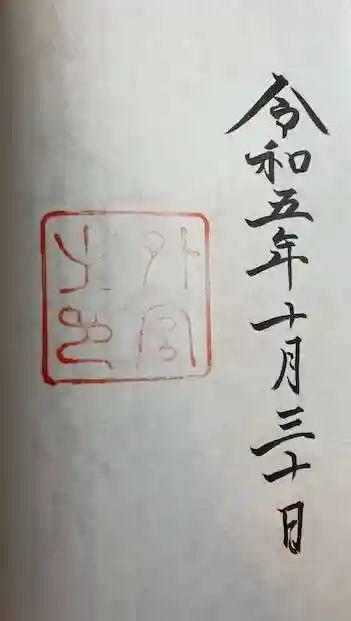 令和五年十月三十日
外宮
之印